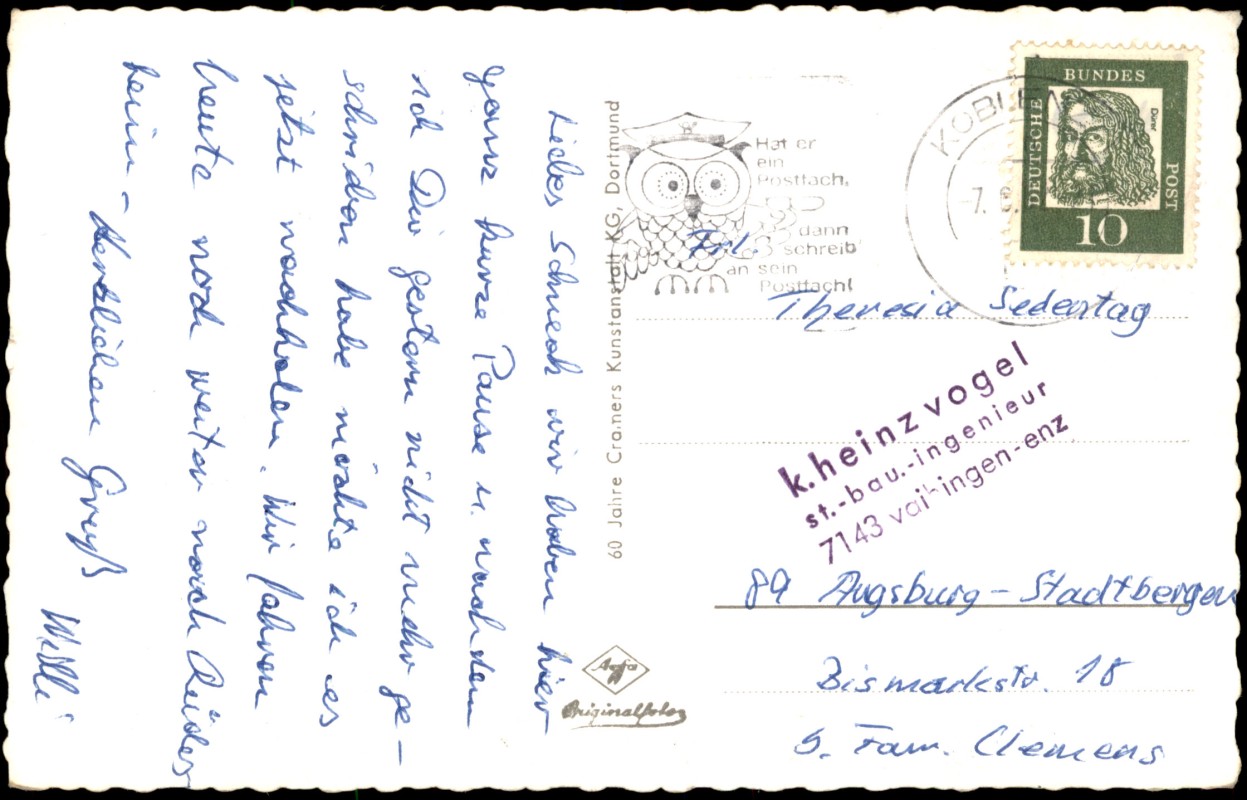 Liebes Schneck wir haben hier
ganz kurze Pause u. nachdem
ich Dir gestern nicht mehr ge-
schrieben habe möchte ich es
jetzt nachholen. Wir fahren
heute noch weiter nach Rüdes
heim - Herzlichen Gruß
Willi
60 Jahre Cramers Kunstanstalt KG, Dortmund
Agfa
Originalfoto
Hat er
ein
Postfach,
dann
schreib
an sein
Postfach!
KOBLE
7.
DEUTSCHE
BUNDES
POST
Dürer
10
Frl.
Theresia Sedertag
k.heinz vogel
st.-bau.-ingenieur
7143 vaihingen-enz
89 Augsburg-Stadtbergen
Bismarkstr. 18
b. Fam. Clemens